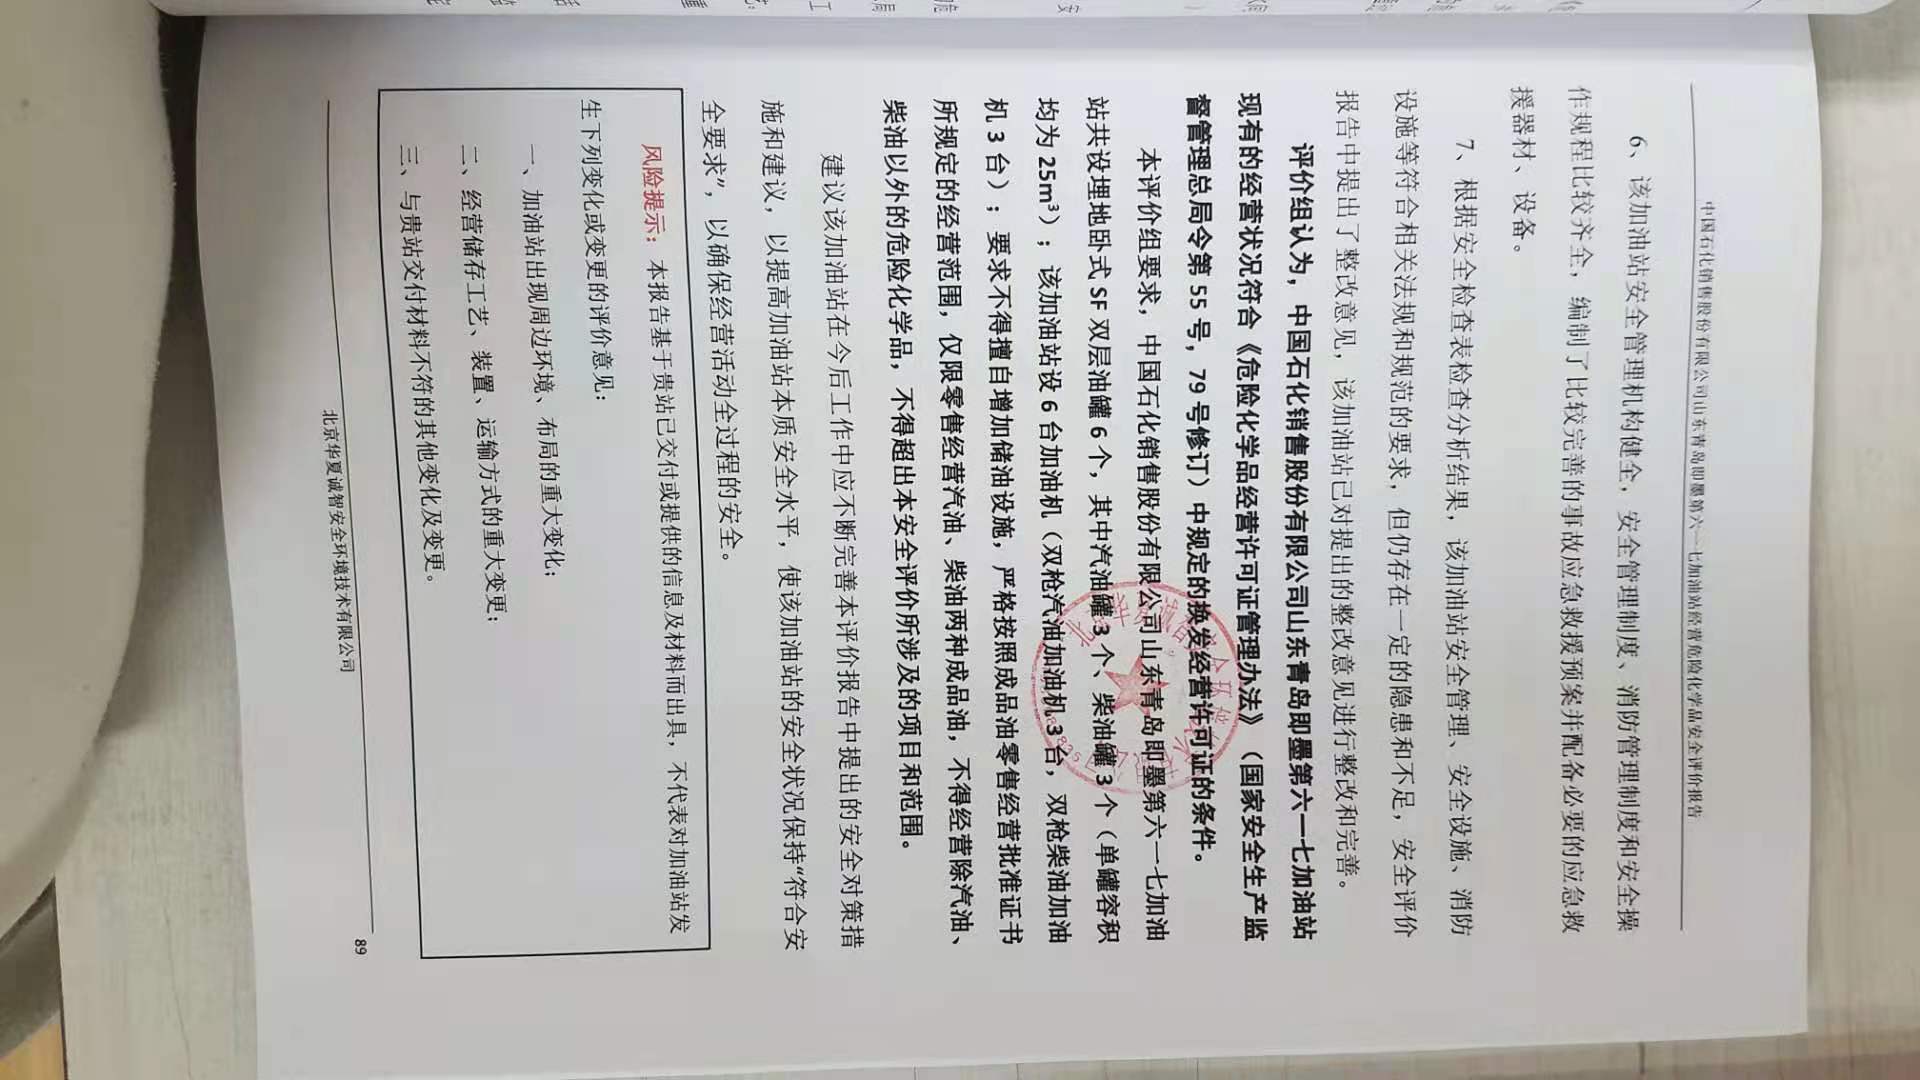 中国石化销售股份有限公司山东青岛即墨第六一七加油站经营危险化学品安全评价报告
6、该加油站安全管理机构健全，安全管理制度、消防管理制度和安全操
作规程比较齐全，编制了比较完善的事故应急救援预案并配备必要的应急救
援器材、设备。
7、根据安全检查表检查分析结果，该加油站安全管理、安全设施、消防
设施等符合相关法规和规范的要求，但仍存在一定的隐患和不足，安全评价
报告中提出了整改意见，该加油站已对提出的整改意见进行整改和完善。
评价组认为，中国石化销售股份有限公司山东青岛即墨第六一七加油站
现有的经营状况符合《危险化学品经营许可证管理办法》（国家安全生产监
督管理总局令第 55 号，79 号修订）中规定的换发经营许可证的条件。
本评价组要求，中国石化销售股份有限公司山东青岛即墨第六一七加油
站共设埋地卧式 SF 双层油罐 6 个，其中汽油罐 3 个、柴油罐 3 个（单罐容积
均为 25m³）；该加油站设 6 台加油机（双枪汽油加油机 3 台，双枪柴油加油
机 3 台）；要求不得擅自增加储油设施，严格按照成品油零售经营批准证书
所规定的经营范围，仅限零售经营汽油、柴油两种成品油，不得经营除汽油、
柴油以外的危险化学品，不得超出本安全评价所涉及的项目和范围。
建议该加油站在今后工作中应不断完善本评价报告中提出的安全对策措
施和建议，以提高加油站本质安全水平，使该加油站的安全状况保持“符合安
全要求”，以确保经营活动全过程的安全。
风险提示：本报告基于贵站已交付或提供的信息及材料而出具，不代表对加油站发
生下列变化或变更的评价意见：
一、加油站出现周边环境、布局的重大变化；
二、经营储存工艺、装置、运输方式的重大变更；
三、与贵站交付材料不符的其他变化及变更。
北京华夏诚智安全环境技术有限公司
89